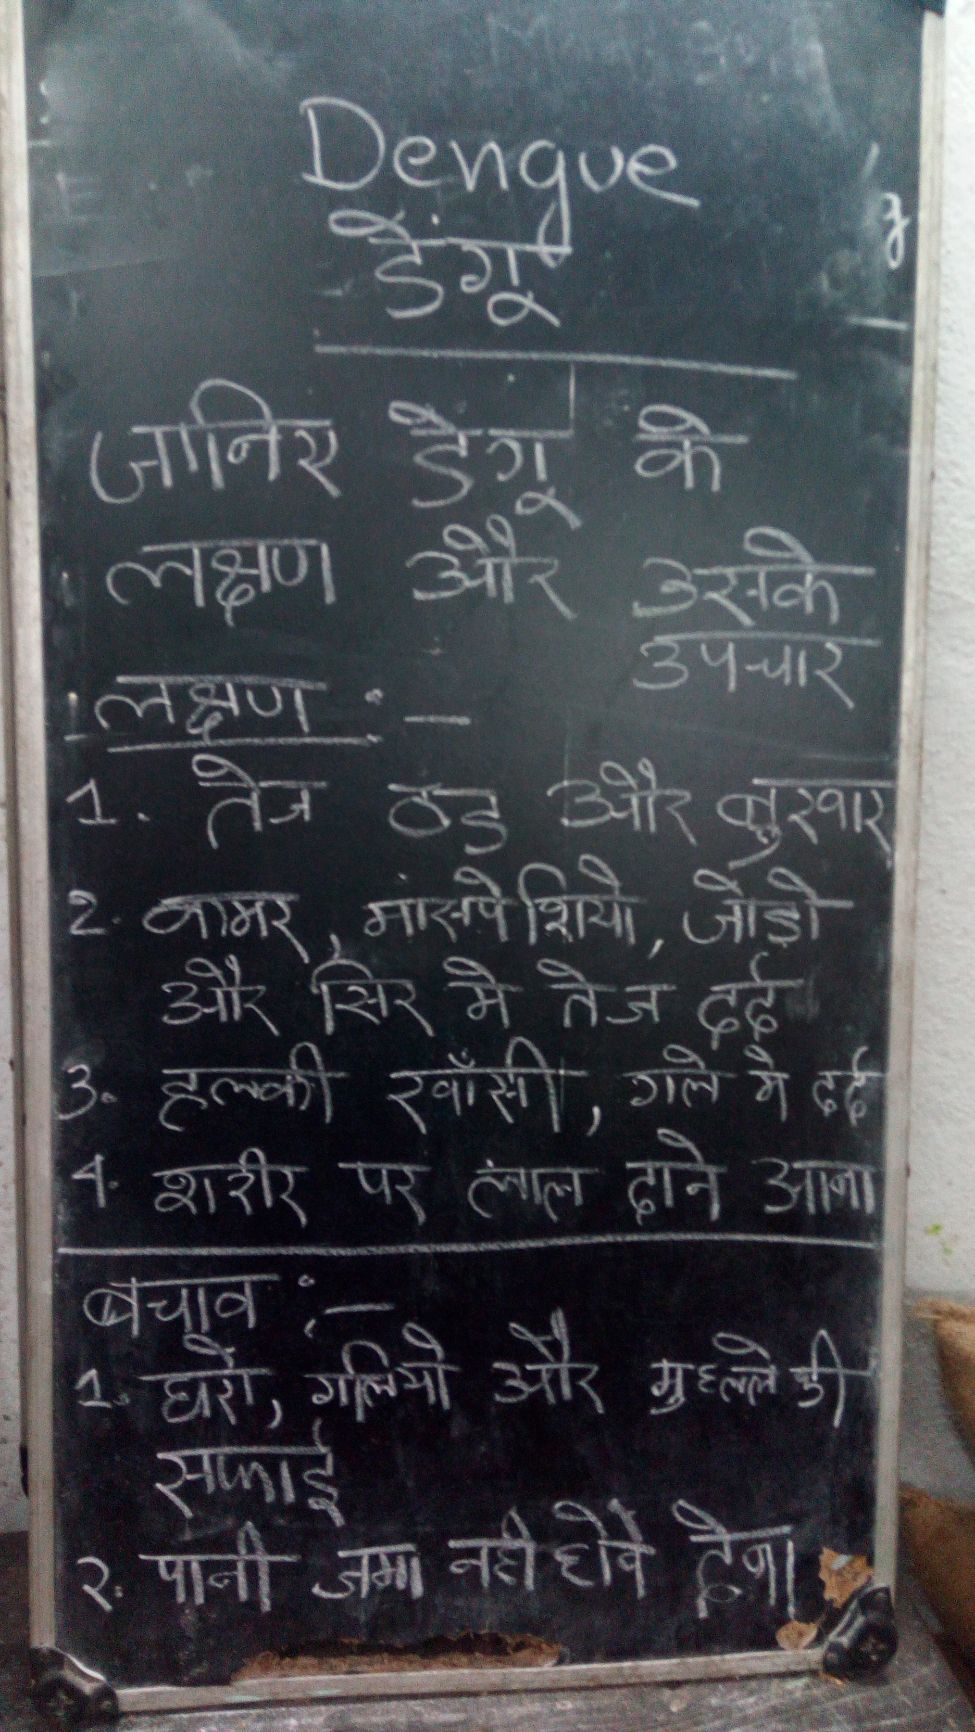 Dengue
डेंगू
जानिए डेंगू के
लक्षण और उसके
उपचार
लक्षण :-
1. तेज ठंड और बुखार
2. कमर, मांसपेशियो, जोड़ो
और सिर मे तेज दर्द
3. हल्की खाँसी, गले मे दर्द
4. शरीर पर लाल दाने आना
बचाव :-
1. घरो, गलियो और मुहल्ले की
सफाई
२. पानी जमा नही होने देना